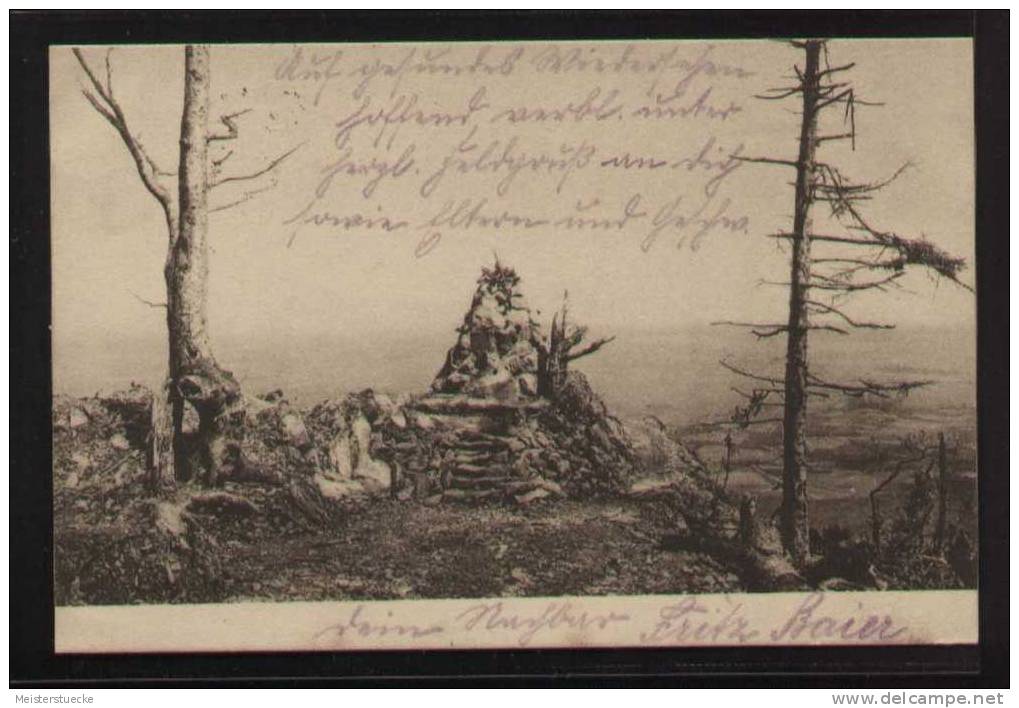 Auf gesundes Wiedersehen
hoffend, verbl. unter
herzl. Feldgruß an dich
sowie Eltern und Geschw.
dein Nachbar Fritz Baier
Meisterstuecke
www.delcampe.net